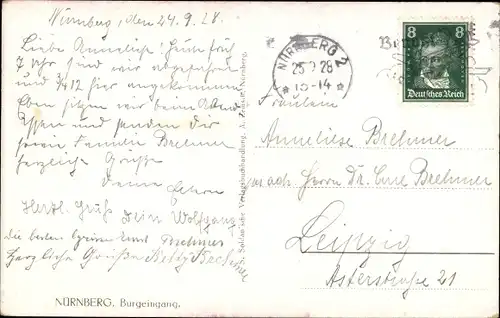 Nürnberg, den 24.9.28.
Liebe Anneliese! Heute früh
7 Uhr sind wir abgefahren
und 3/4 12 hier angekommen.
Eben sitzen wir beim Abend
Essen und senden Dir
Familie Brehmer
herzliche Grüße
Deine Eltern
Herzl. Gruß Dein Wolfgang
Die besten Grüsse Brehmer
Herzliche Grüße Betty
NÜRNBERG, Burgeingang.
Verlagsbuchhandlung, Nürnberg.
NÜRNBERG 2
25.9.28
13-14
8 8
Deutsches Reich
Fräulein
Anneliese Brehmer
Herrn Dr. Curt Brehmer
Leipzig
Asterstraße 21